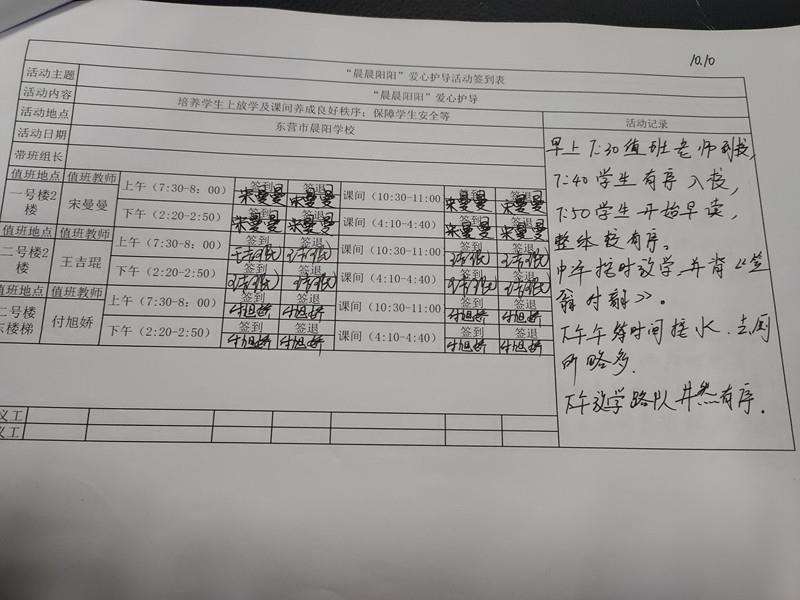 10.10
活动主题 “晨晨阳阳”爱心护导活动签到表
活动内容 “晨晨阳阳”爱心护导
活动地点 培养学生上放学及课间养成良好秩序；保障学生安全等
活动日期 东营市晨阳学校
带班组长
活动记录
值班地点 值班教师 上午（7:30-8：00） 签到 签退 课间（10:30-11:00 签到 签退
宋曼曼 宋曼曼 宋曼曼 宋曼曼
一号楼2楼 宋曼曼 下午（2:20-2:50） 签到 签退 课间（4:10-4:40） 签到 签退
宋曼曼 宋曼曼 宋曼曼 宋曼曼
值班地点 值班教师 上午（7:30-8：00） 签到 签退 课间（10:30-11:00 签到 签退
王吉琨 王吉琨 王吉琨 王吉琨
二号楼2楼 王吉琨 下午（2:20-2:50） 签到 签退 课间（4:10-4:40） 签到 签退
王吉琨 王吉琨 王吉琨 王吉琨
值班地点 值班教师 上午（7:30-8：00） 签到 签退 课间（10:30-11:00 签到 签退
付旭娇 付旭娇 付旭娇 付旭娇
二号楼东楼梯 付旭娇 下午（2:20-2:50） 签到 签退 课间（4:10-4:40） 签到 签退
付旭娇 付旭娇 付旭娇 付旭娇
义工
义工
早上7:30值班老师到校，
7:40学生有序入校，
7:50学生开始早读，
整体较有序。
中午按时放学，并背《笠
翁对韵》。
下午午等时间接水、去厕
所略多.
下午放学路队井然有序.